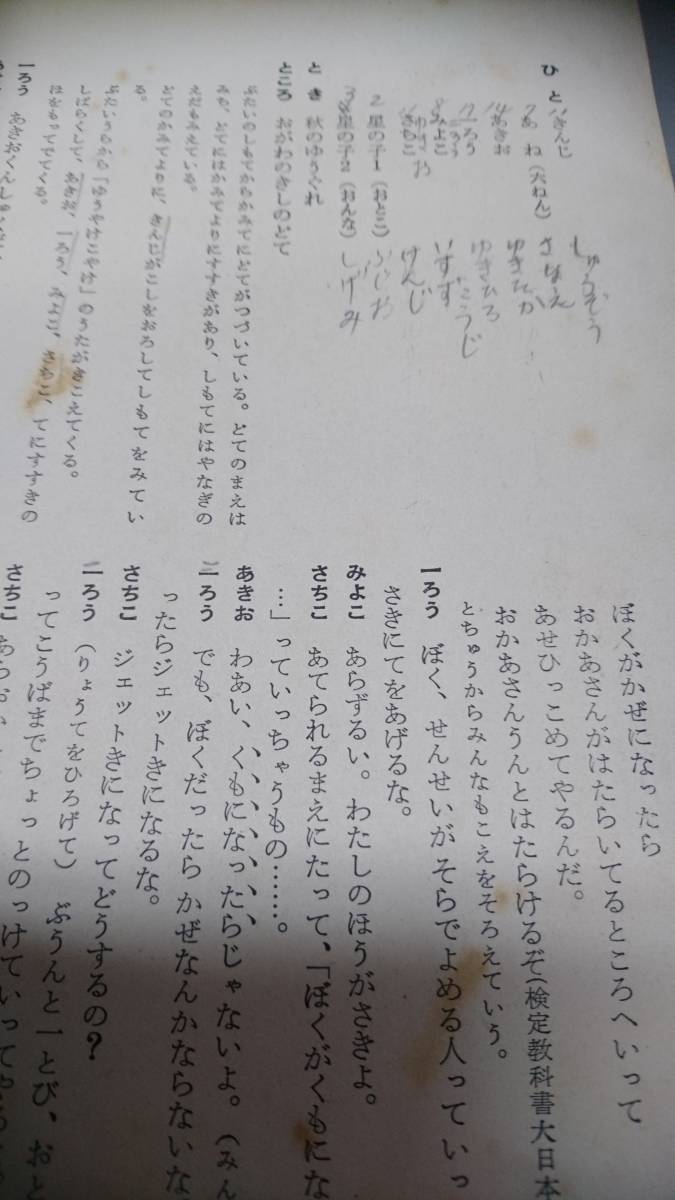 ひと きんじ
あね(六ねん)
あきお
一ろう
二ろう
みよこ
さちこ
星の子1(おとこ)
星の子2(おんな)
とき 秋のゆうぐれ
ところ おがわのきしのどて
ぶたいのしもてからかみてにどてがつづいている。どてのまえは
みち、どてにはかみてよりにすすきがあり、しもてにはやなぎの
えだもみえている。
どてのかみてよりに、きんじがこしをおろしてしもてをみてい
る。
ぶたいうらから「ゆうやけこやけ」のうたがきこえてくる。
しばらくして、あきお、一ろう、みよこ、さちこ、てにすすきの
ほをもってでてくる。
一ろう あきおくん
しゅうぞう
さなえ
ゆきたか
ゆきひろ
こうじ
いすず
けんじ
ふじお
しげみ
ぼくがかぜになったら
おかあさんがはたらいてるところへいって
あせひっこめてやるんだ。
おかあさんうんとはたらけるぞ(検定教科書大日本
とちゅうからみんなもこえをそろえていう。
一ろう ぼく、せんせいがそらでよめる人っていっ
さきにてをあげるな。
みよこ あらずるい。わたしのほうがさきよ。
さちこ あてられるまえにたって、「ぼくがくもにな
…」っていっちゃうもの……。
あきお わあい、くもになったらじゃないよ。(みん
二ろう でも、ぼくだったら かぜなんかならないな
ったらジェットきになるな。
さちこ ジェットきになってどうするの?
二ろう (りょうてをひろげて) ぶうんと一とび、おと
ってこうばまでちょっとのっけていってやる
さちこ あらおか